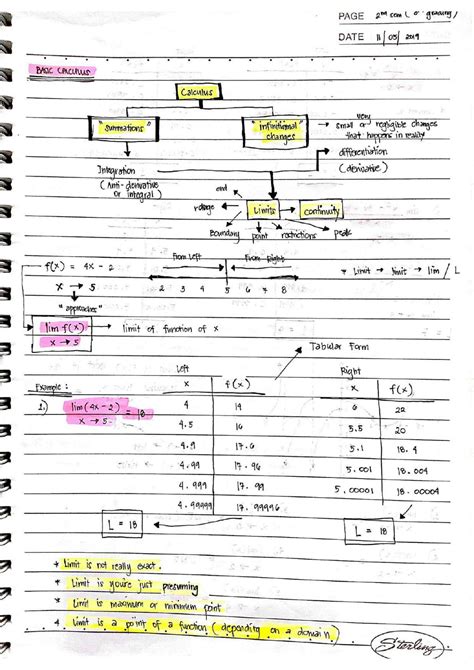 PAGE 2nd sem ( grading)
DATE 11/03/2019
BASIC CALCULUS
Calculus
"summations"
"infinitional changes"
→ very small or negligible changes
that happens in really
Integration
(Anti-derivative
or integral)
→ differentiation
(derivative)
end
voltage
Limits
continuity
Boundary
point
restrictions
peak
f(x) = 4x - 2
From Left
From Right
* Limit → limit → lim / L
x → 5
2 3 4 5 6 7 8
"approaches"
lim f(x)
x → 5
→ limit of function of x
Tabular Form
Left
Right
Example:
x f(x)
x f(x)
1.) lim (4x - 2) = 18
x → 5
4 14
6 22
4.5 16
5.5 20
4.9 17.6
5.1 18.4
4.99 17.96
5.001 18.004
4.999 17.996
5.00001 18.00004
4.99999 17.99996
L = 18
L = 18
* Limit is not really exact.
* Limit is you're just presuming
* Limit is maximum or minimum point
* Limit is a point of a function (depending on a domain)
Sterling